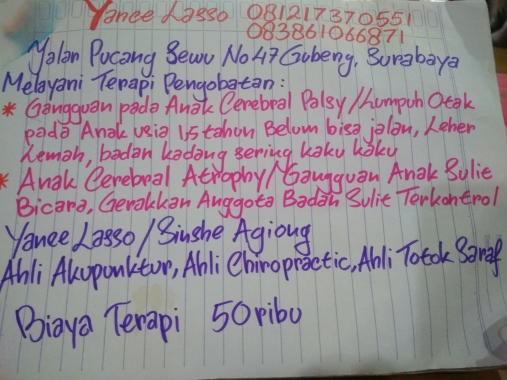 Yanee Lasso 081217370551
083861066871
Jalan Pucang Sewu No 47 Gubeng, Surabaya
Melayani Terapi Pengobatan:
* Gangguan pada Anak Cerebral Palsy/Lumpuh Otak
pada Anak usia 1,5 tahun Belum bisa jalan, Leher
Lemah, badan kadang sering kaku kaku
* Anak Cerebral Atrophy/Gangguan Anak Sulit
Bicara, Gerakkan Anggota Badan Sulit Terkontrol
Yanee Lasso/Sinshe Agiong
Ahli Akupunktur, Ahli Chiropractic, Ahli Totok Saraf
Biaya Terapi 50 ribu